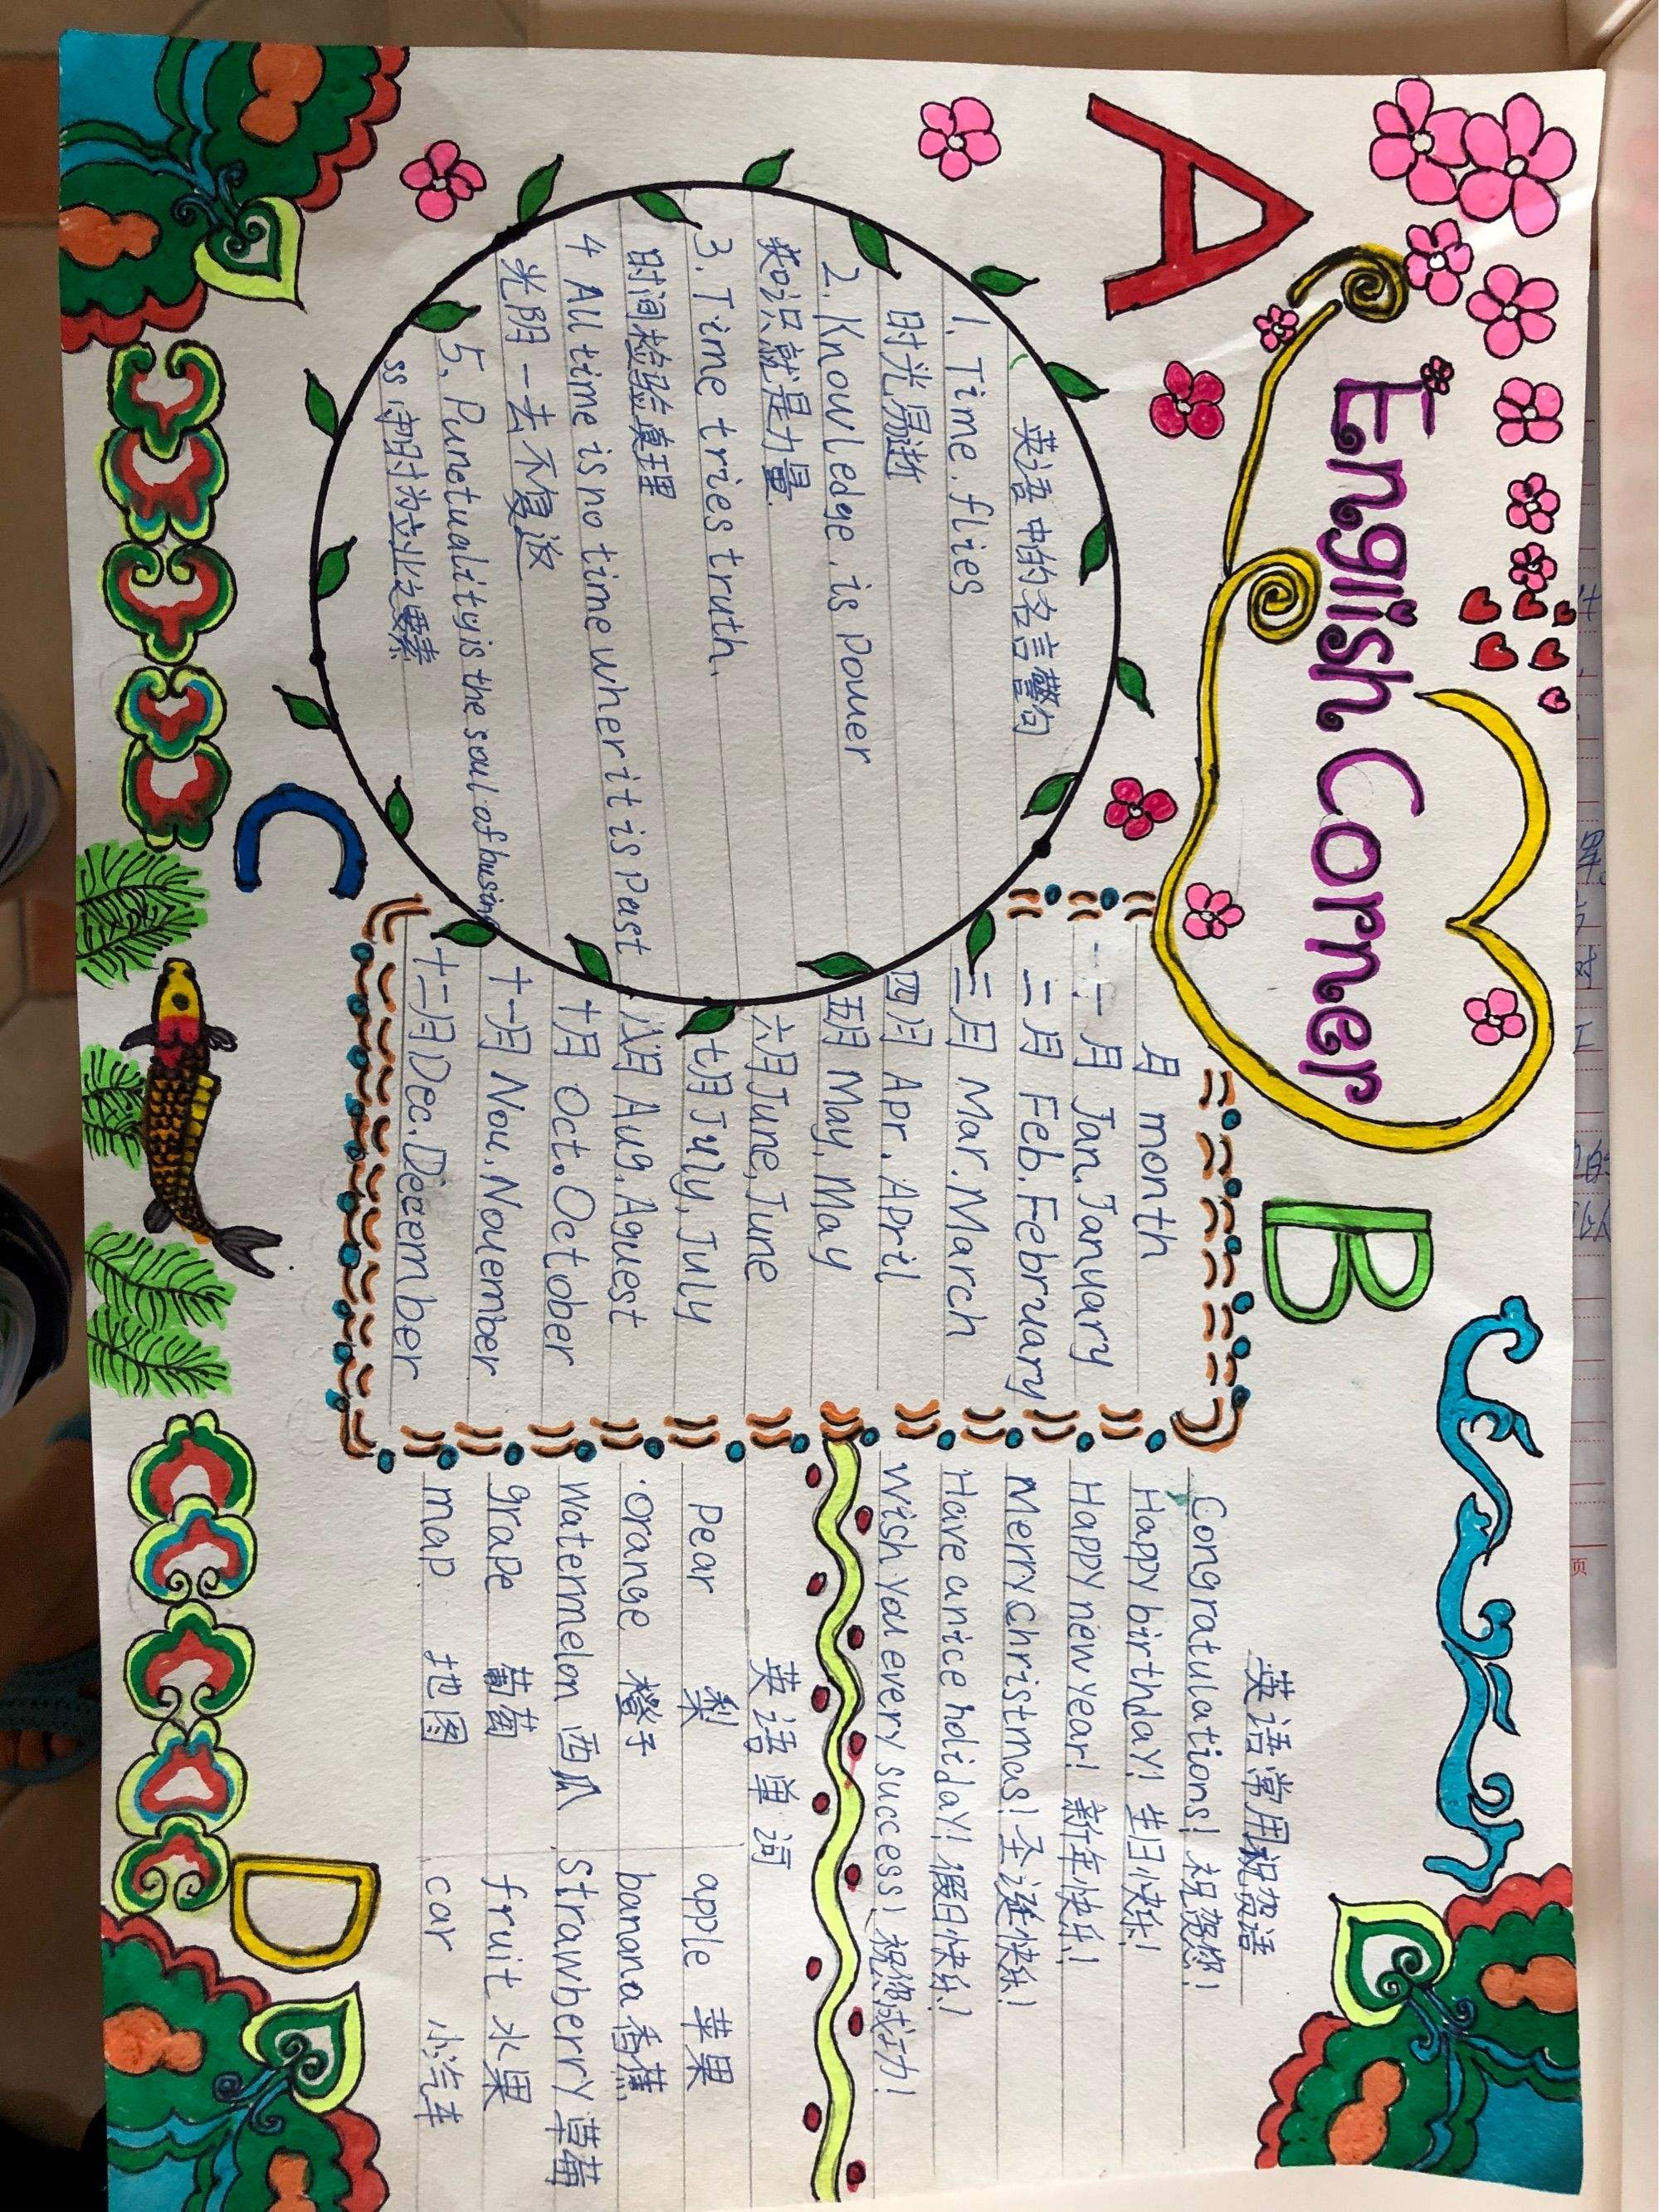 A
English Corner
B
英语中的名言警句
1. Time.flies
时光易逝
2. Knowledge.is Pouer
就是力量.
3. Time tries truth.
时间检验真理
4 All time is no time when it is Past
光阴一去不复返
5. Punctuality is the soul of busin
守时为立业之要素
C
月 month
一月 Jan.January
二月 Feb.February
三月 Mar.March
四月 Apr.April
五月 May.May
六月June,June
七月July,July
八月 Aug.Aguest
十月 Oct.October
十一月 Nou.Nouember
十二月Dec.December
英语常用祝贺语
Congratulations! 祝贺您!
Happy birthdaY! 生日快乐!
Happy new year! 新年快乐!
Merry christmas! 圣诞快乐!
Have a nice holidaY! 假日快乐!
Wish you every success! 祝您成功!
英语单词
Pear 梨 apple 苹果
orange 橙子 banana 香蕉
Watermelon 西瓜 Strawberry 草莓
grape 葡萄 fruit 水果
map 地图 car 小汽车
D